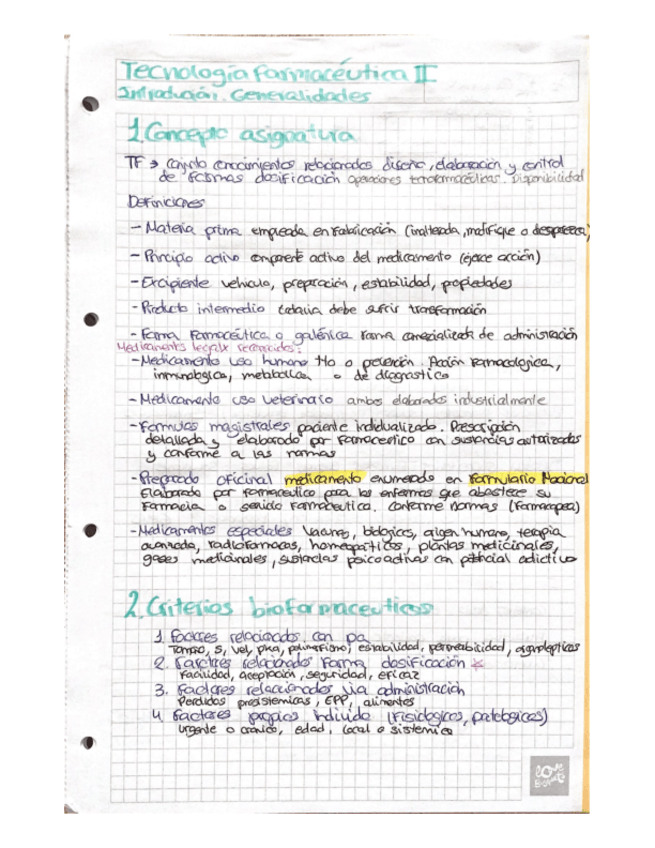 Tecnología farmacéutica II
Introdución. Generalidades
1. Concepto asignatura
TF → conjunto conocimientos relacionados diseño, elaboración y control
de formas dosificación operaciones tecnofarmacéuticas. Disponibilidad
Definiciones
- Materia prima empleada en fabricación (inalterada, modifique o desparezca)
- Principio activo componente activo del medicamento (ejerce acción)
- Excipiente vehiculo, preparación, estabilidad, propiedades
- Producto intermedio todavía debe sufrir transformación
- Forma farmacéutica o galénica forma comercializada de administración
Medicamentos legalx reconocidos:
- Medicamento uso humano tto o prevención. Acción farmacológica,
inmunológica, metabólica o de diagnóstico
- Medicamento uso veterinario ambos elaborados industrialmente
- Fórmulas magistrales paciente individualizado. Prescripción
detallada y elaborado por farmaceútico con sustancias autorizadas
y conforme a las normas
- Preparado oficinal medicamento enumerado en Formulario Nacional
Elaborado por farmaceutico para los enfermos que abastece su
farmacia o servicio farmacéutica. Conforme normas (farmacopea)
- Medicamentos especiales vacunas, biológicos, origen humano, terapia
avanzada, radiofármacos, homeopáticos, plantas medicinales,
gases medicinales, sustancias psicoactivas con potencial adictivo
2. Criterios biofarmaceuticos
1. Factores relacionados con pa
Tamaño, S, vel, pka, polimorfismo, estabilidad, permeabilidad, organolepticas
2. Factores relacionados forma dosificación *
Facilidad, aceptación, seguridad, eficaz
3. Factores relacionados vía administración
Perdidas presistemicas, EPP, alimentos
4. Factores propios individuo (fisiologicos, patologicos)
Urgente o cronico, edad, local o sistemico